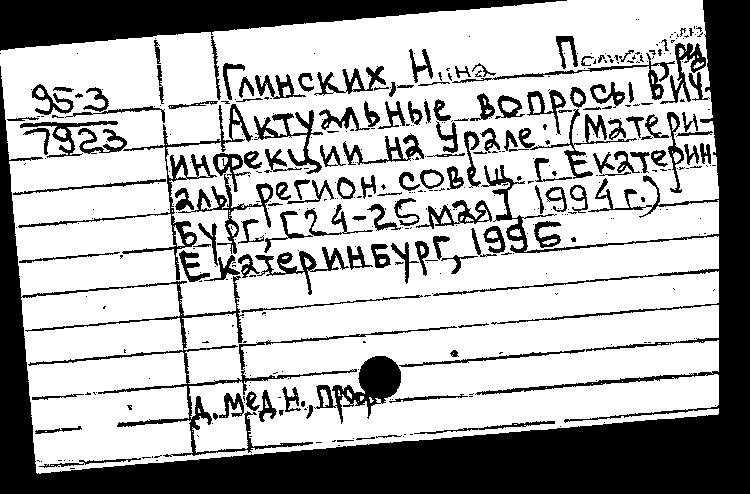 95-3
7923
Глинских, Нина Поликарп, ред.
Актуальные вопросы ВИЧ-
инфекции на Урале: (Матери-
алы регион. совещ. г. Екатерин-
бург, [24-25 мая], 1994 г.)
Екатеринбург, 1995.
д. мед. н., проф.